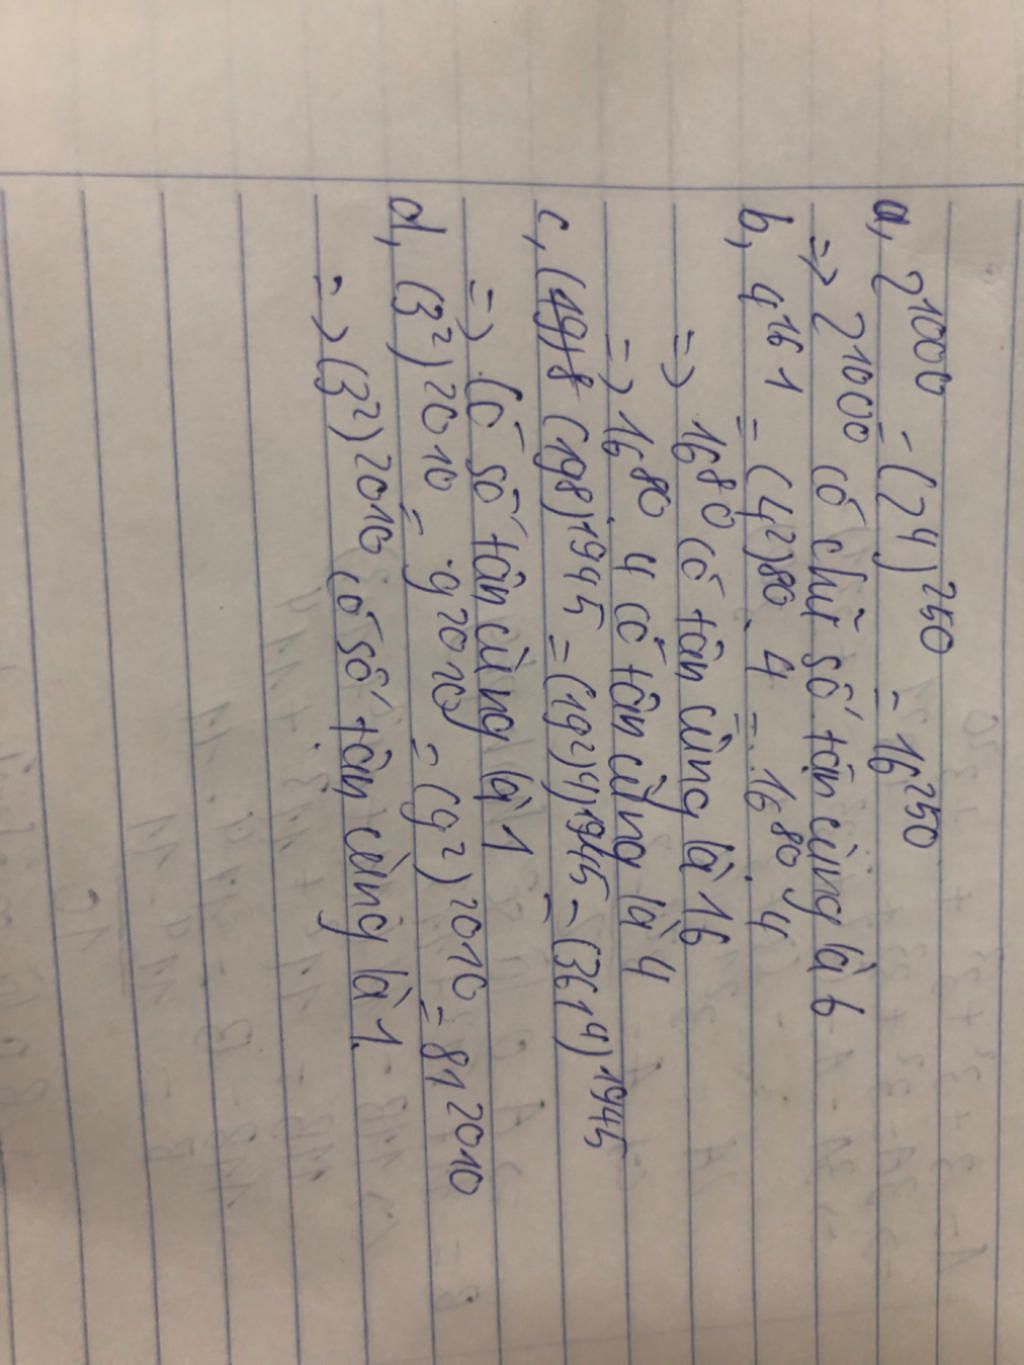 a, 2^1000 = (2^4)^250 = 16^250
=> 2^1000 có chữ số tận cùng là 6
b, 4^161 = (4^2)^80 . 4 = 16^80 . 4
=> 16^80 có tân cùng là 16
=> 16^80 . 4 có tân cùng là 4
c, (19^8)^1945 = (19^2)^4)^1945 = (361^4)^1945
=> Có số tân cùng là 1
d, (3^2)^2010 = 9^2010 = (9^2)^2010 = 81^2010
=> (3^2)^2010 có số tân cùng là 1.